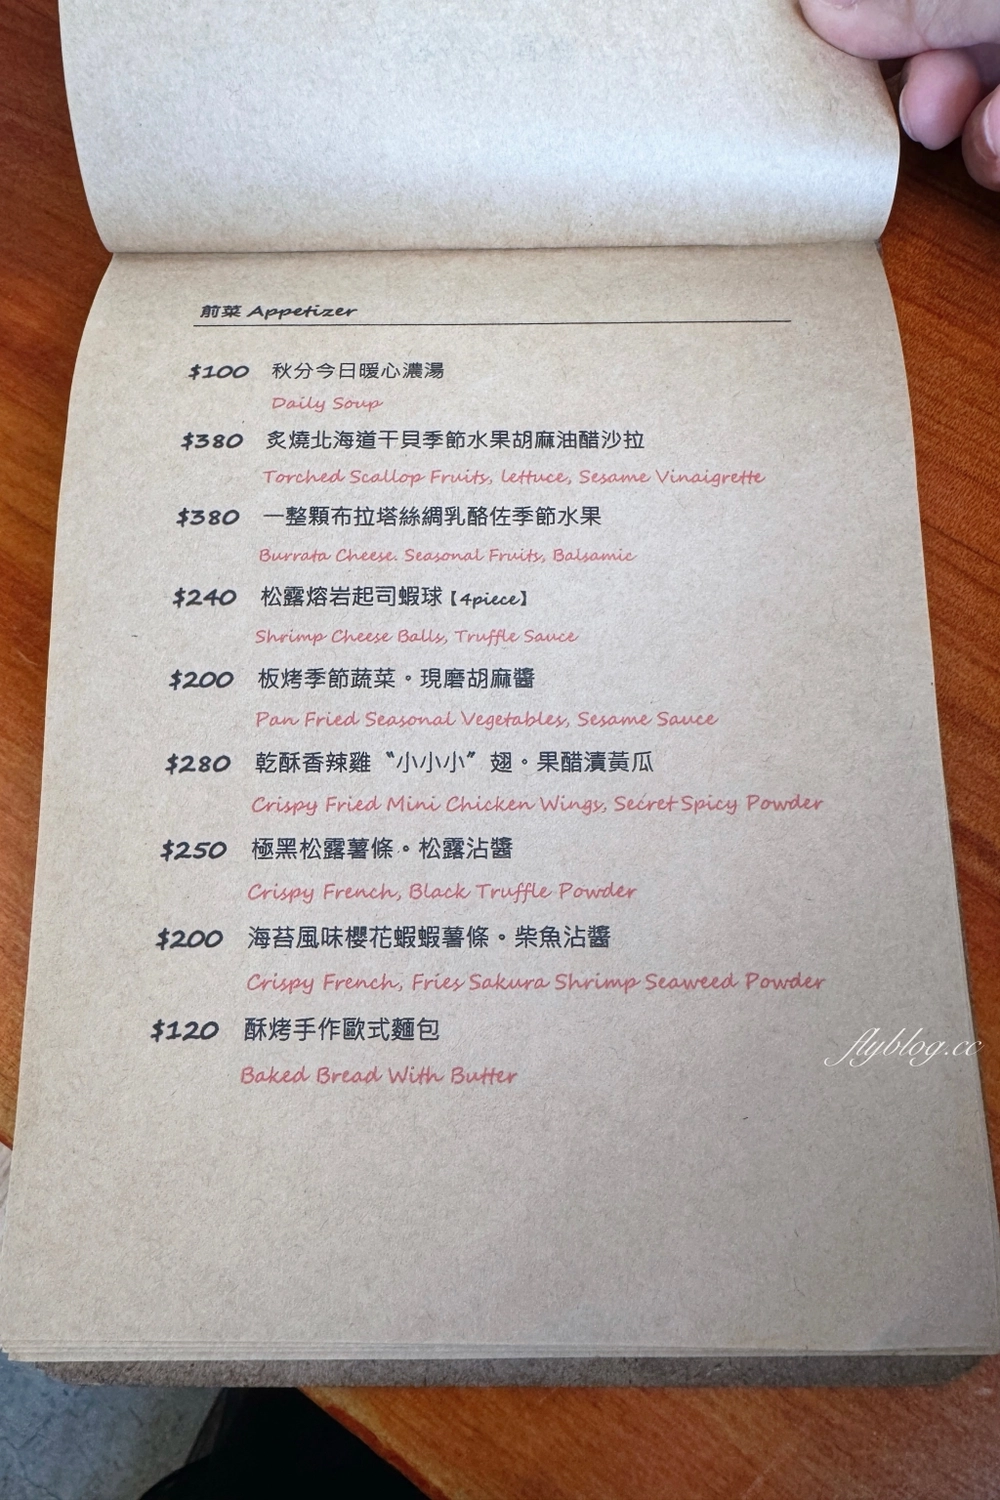 前菜 Appetizer
$100 秋分今日暖心濃湯
Daily Soup
$380 炙燒北海道干貝季節水果胡麻油醋沙拉
Torched Scallop Fruits, lettuce, Sesame Vinaigrette
$380 一整顆布拉塔絲綢乳酪佐季節水果
Burrata Cheese. Seasonal Fruits, Balsamic
$240 松露熔岩起司蝦球【4piece】
Shrimp Cheese Balls, Truffle Sauce
$200 板烤季節蔬菜。現磨胡麻醬
Pan Fried Seasonal Vegetables, Sesame Sauce
$280 乾酥香辣雞〝小小小〞翅。果醋漬黃瓜
Crispy Fried Mini Chicken Wings, Secret Spicy Powder
$250 極黑松露薯條。松露沾醬
Crispy French, Black Truffle Powder
$200 海苔風味櫻花蝦蝦薯條。柴魚沾醬
Crispy French, Fries Sakura Shrimp Seaweed Powder
$120 酥烤手作歐式麵包
Baked Bread With Butter
flyblog.cc